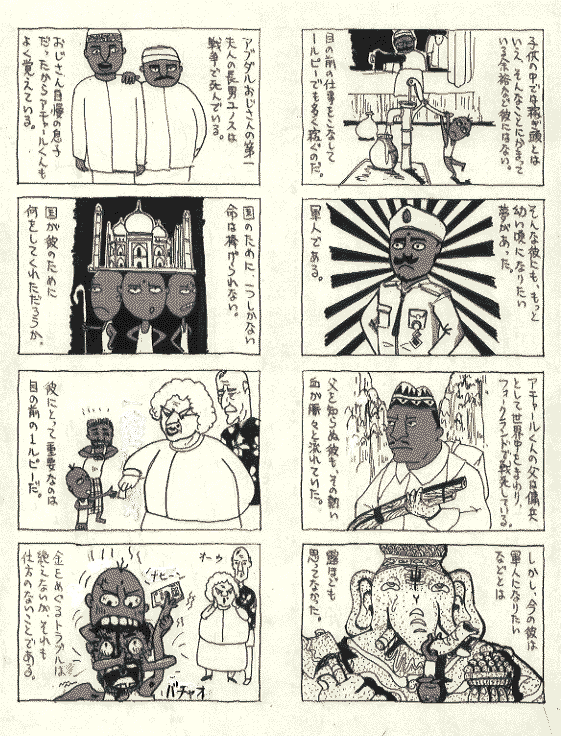 子供の中では稼ぎ頭とは
いえ、そんなことにかまって
いる余裕など彼にはない。
目の前の仕事をこなして
1ルピーでも多く稼ぐのだ。
そんな彼にも、もっと
幼い頃になりたい
夢があった。
軍人である。
アチャールくんの父は傭兵
として世界中をとびまわり、
フォークランドで戦死している。
父を知らぬ彼も、その熱い
血が脈々と流れていた。
しかし、今の彼は
軍人になりたい
などとは
露ほども
思ってなかった。
アブダルおじさんの第一
夫人の長男ユノスは
戦争で死んでいる。
おじさん自慢の息子
だったからアチャールくんも
よく覚えている。
国のために、一つしかない
命は捧げられない。
国が彼のために
何をしてくれただろうか。
彼にとって重要なのは
目の前の1ルピーだ。
オーゥ
ナヒーン
バチャオ
金をめぐるトラブルは
絶えないが、それも
仕方のないことである。